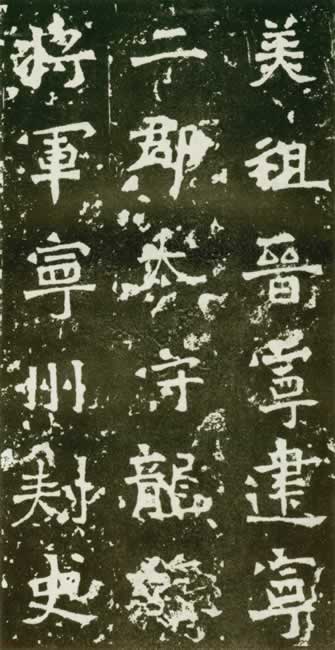 美祖晉寧建寧
二郡太守龍驤
將軍寧州刺史